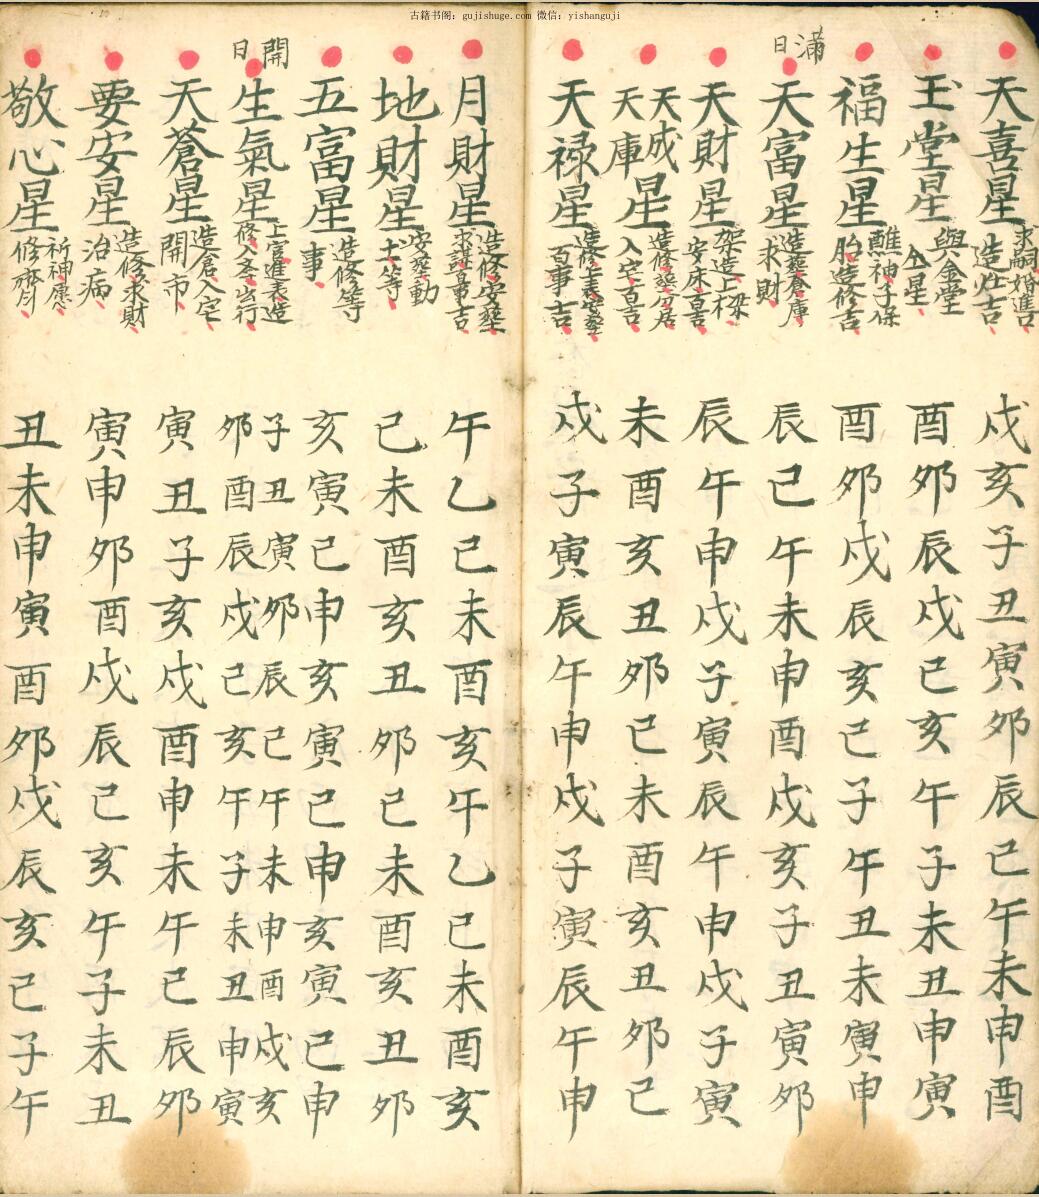 古籍书阁：gujishuge.com 微信：yishanguji
天喜星 求嗣婚進口造灶吉 戌亥子丑寅卯辰巳午未申酉
玉堂星 與金堂全星 酉卯辰戌巳亥午子未丑申寅
福生星 醮神子保胎造修吉 酉卯戌辰亥巳子午丑未寅申
滿日
天富星 造葬倉庫求財 辰巳午未申酉戌亥子丑寅卯
天財星 架造上樑安床百吉 辰午申戌子寅辰午申戌子寅
天成天庫星 造修葬分居入宅百吉 未酉亥丑卯巳未酉亥丑卯巳
天禄星 造修上表安葬百事吉 戌子寅辰午申戌子寅辰午申
月財星 造修安葬求謀百吉 午乙巳未酉亥午乙巳未酉亥
地財星 安葬動土等 巳未酉亥丑卯巳未酉亥丑卯
五富星 造修等事 亥寅巳申亥寅巳申亥寅巳申
開日
生氣星 上官進表造修入宅出行 子丑寅卯辰巳午未申酉戌亥
卯酉辰戌巳亥午子未丑申寅
天蒼星 造倉入宅開市 寅丑子亥戌酉申未午巳辰卯
要安星 造修求財治病 寅申卯酉戌辰巳亥午子未丑
敬心星 祈神還修齋 丑未申寅酉卯戌辰亥巳子午